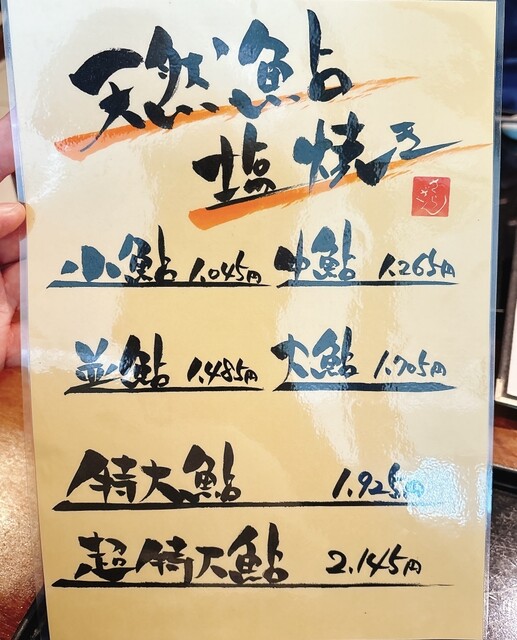 天然鮎
塩焼き
小鮎 1.045円 中鮎 1.265円
並鮎 1.485円 大鮎 1.705円
特大鮎 1.925円
超特大鮎 2.145円